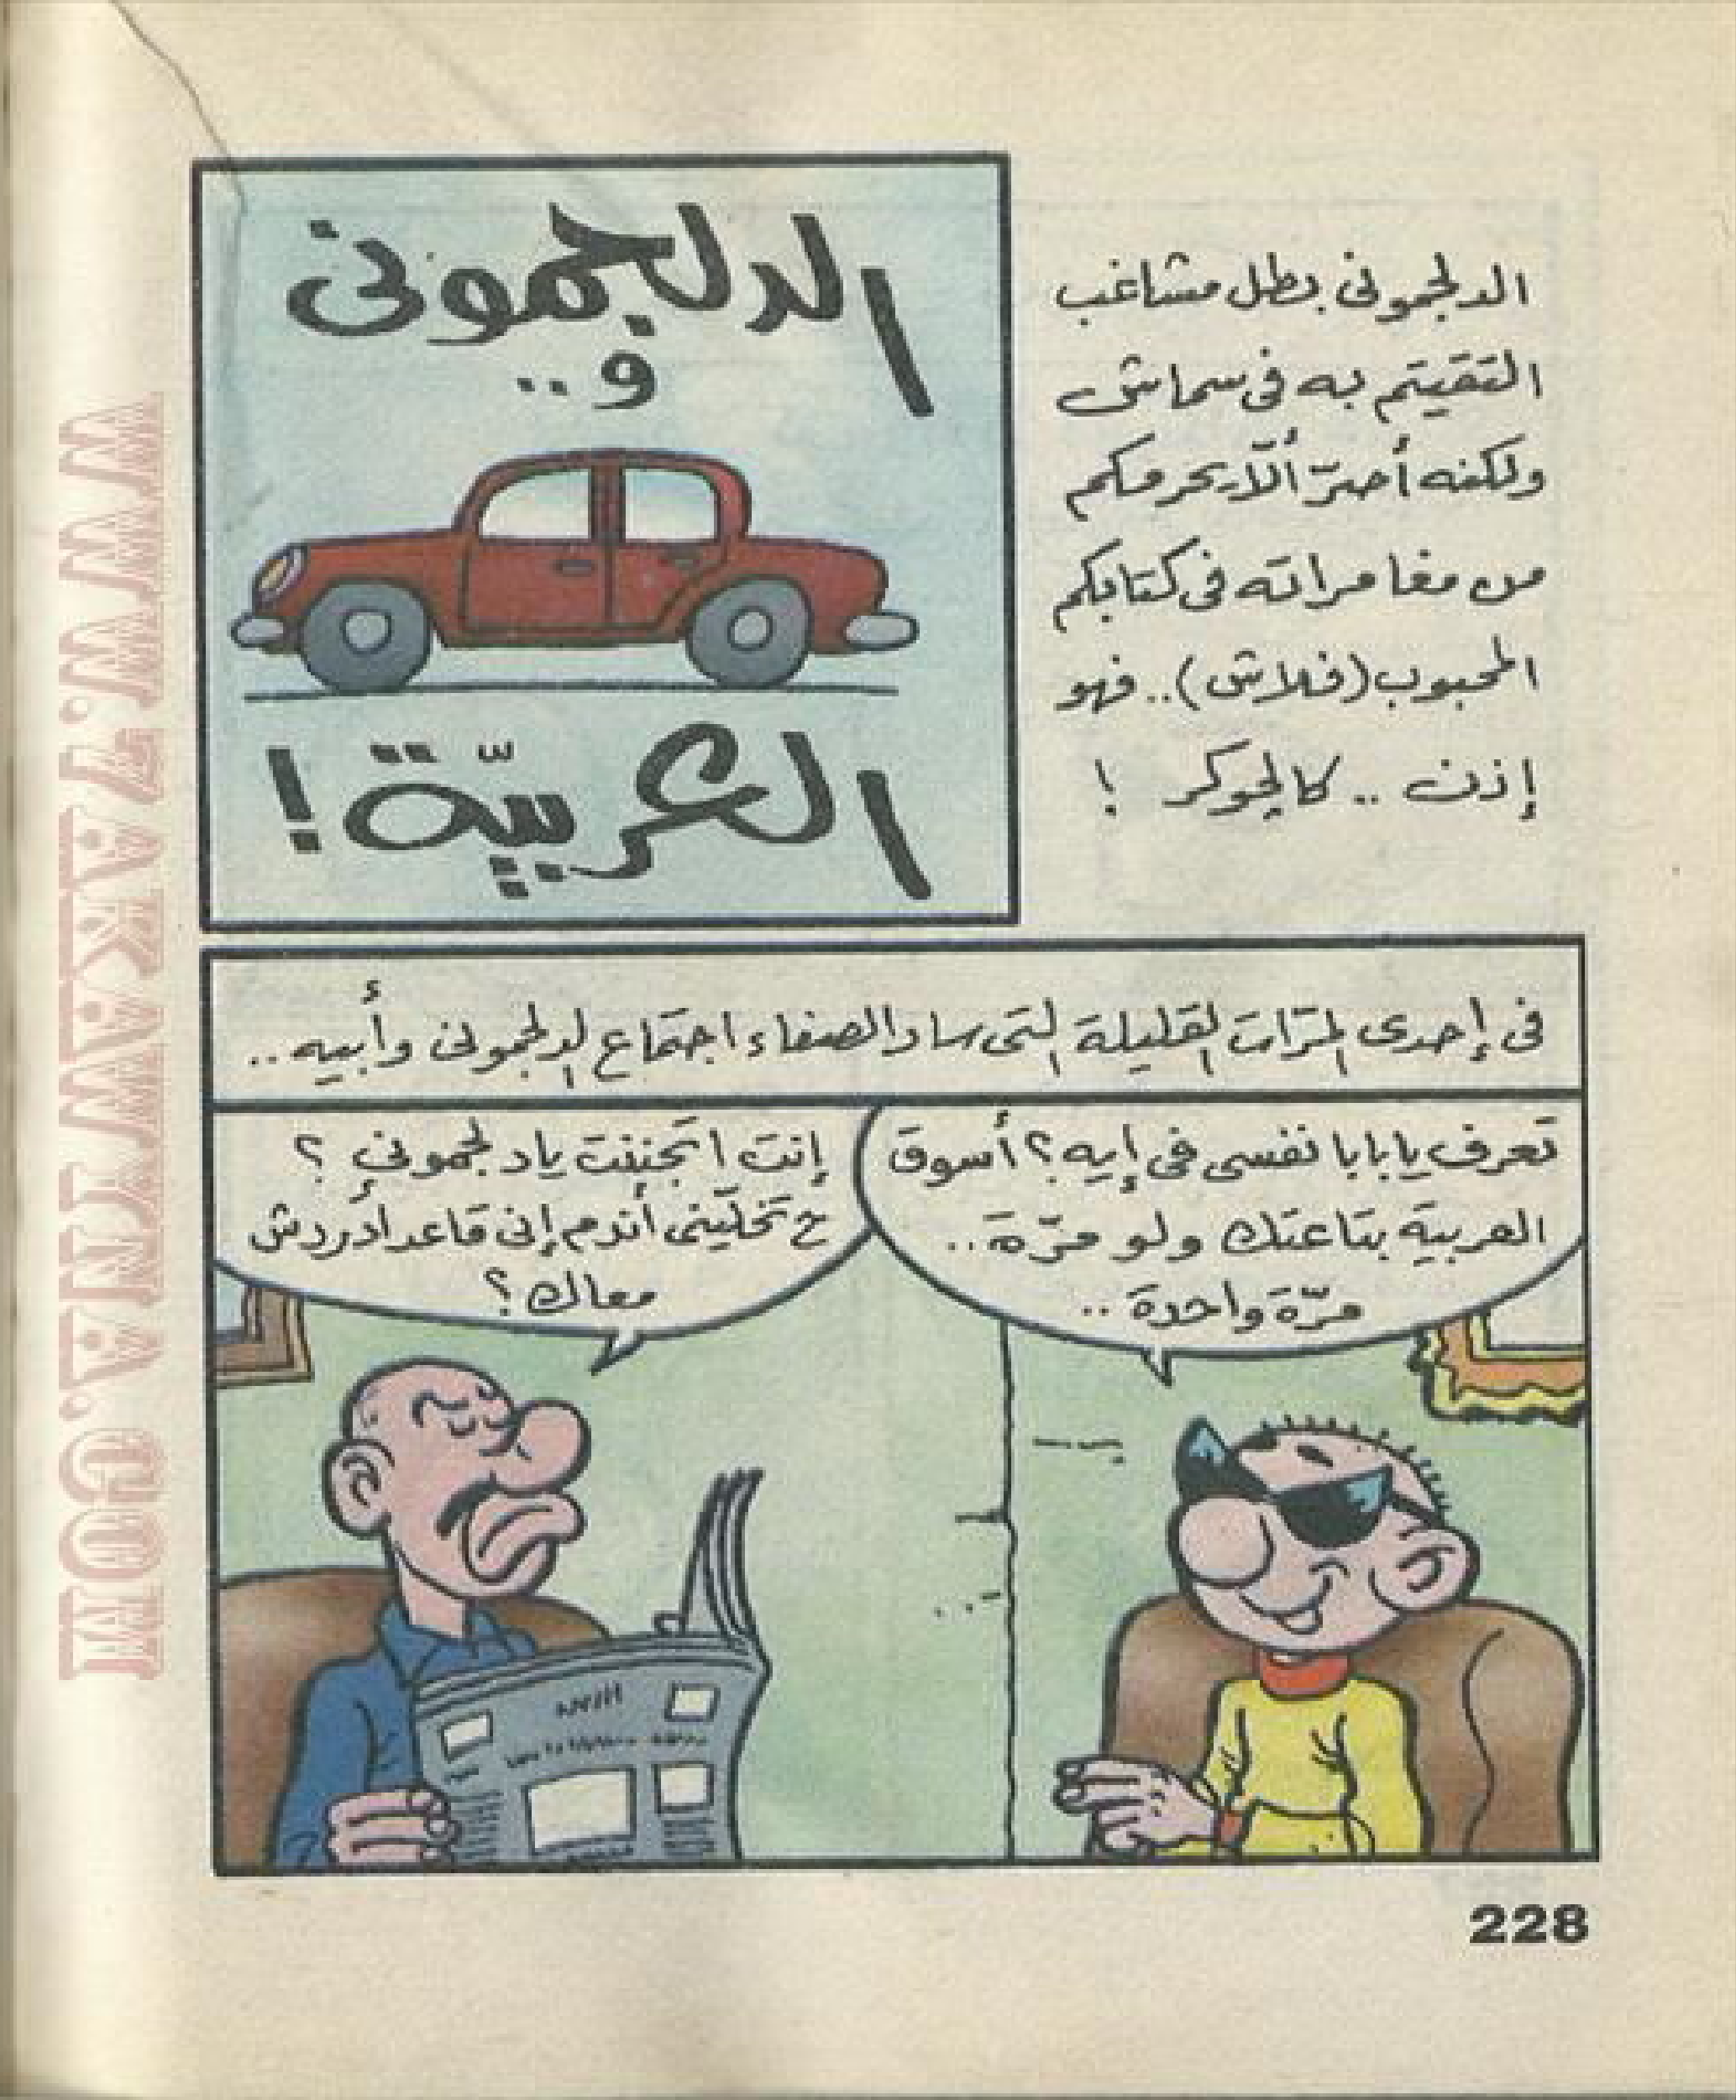 الدلجمونى
و..
العربيّة!
الدلجمونى بطل مشاغب
التقيتم به فى سماش
ولكنه أصرّ ألّا يحرمكم
من مغامراته فى كتابكم
المحبوب (فلاش).. فهو
إذن .. كالجوكر !
فى إحدى المرّات القليلة التى ساد الصفاء اجتماع الدلجمونى وأبيه ..
تعرف يا بابا نفسى فى إيه؟ أسوق
العربية بتاعتك ولو مرّة..
مرّة واحدة ..
إنت اتجننت يا دلجمونى ؟
ح تخلّينى أندم إنى قاعد أدردش
معاك؟
228
WWW.7AKAWITNA.COM